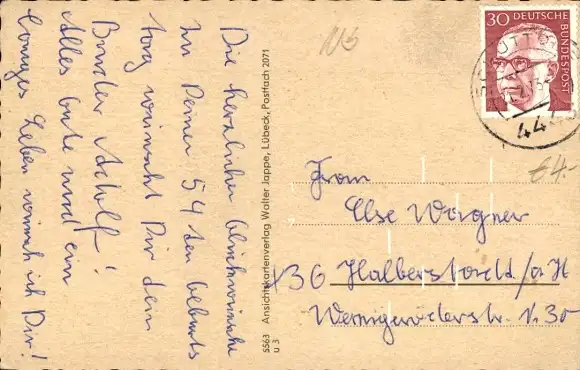 Die herzlichen Glückwünsche
zu Deinen 54 ten Geburts
tag wünscht Dir dein
Bruder Adolf!
Alles Gute und ein
langes Leben wünsch ich Dir!
5563 Ansichtskartenverlag Walter Jappe, Lübeck, Postfach 2071
u 3
30 DEUTSCHE
BUNDESPOST
44
€4.-
Frau
Else Wagner
x36 Halberstadt/a H
Wernigeröderstr. 30